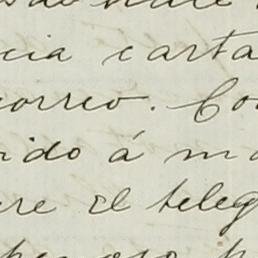 cia carta
correo. Co
ido á m
re el teleg